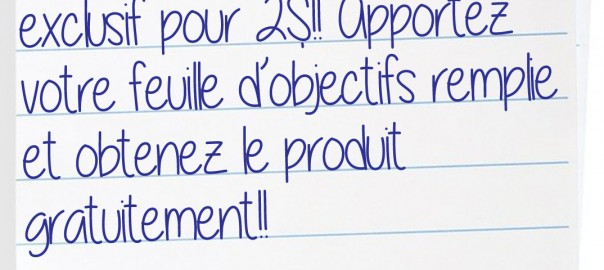 exclusif pour 2$!! Apportez
votre feuille d'objectifs remplie
et obtenez le produit
gratuitement!!